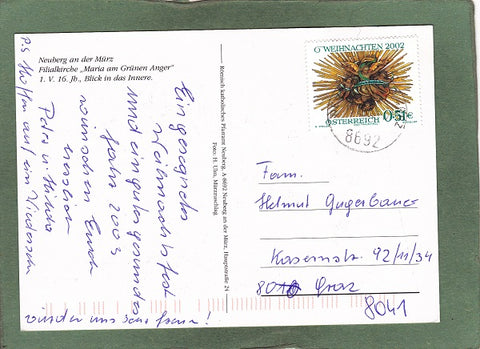 Neuberg an der Mürz
Filialkirche „Maria am Grünen Anger"
1. V. 16. Jh., Blick in das Innere.
Ein gesegnetes
Weihnachtsfest
und ein gutes gesundes
Jahr 2003
wünschen Euch
herzlich
Peter u.
P.S. Hoffen auf ein Wiedersehen
würden uns sehr freuen!
Römisch katholisches Pfarramt Neuberg, A 8692 Neuberg an der Mürz, Hauptstraße 24
Foto: H. Uhm, Mürzzuschlag
WEIHNACHTEN 2002
ÖSTERREICH 0.51€
8692
Fam.
Helmut Gugerbauer
Kasernstr. 92/11/34
Graz
8041